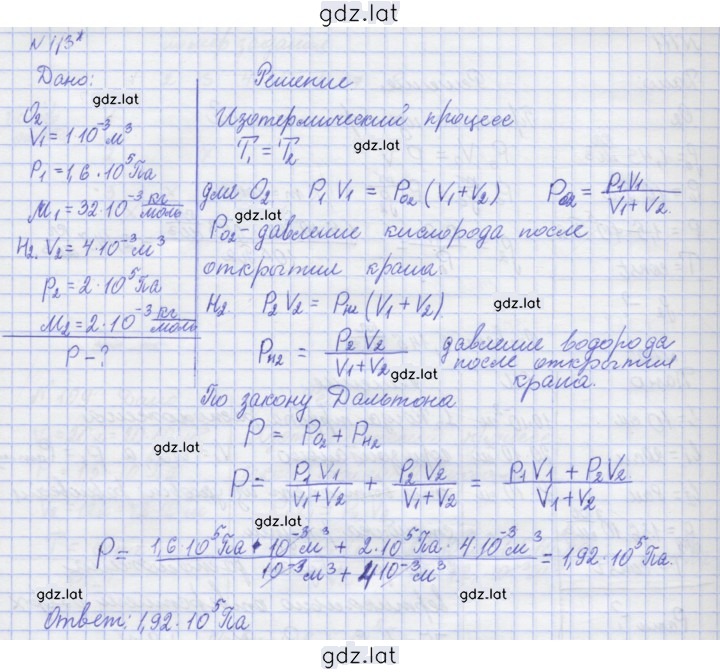 gdz.lat
N 113*
Дано:
gdz.lat
O₂
V₁ = 1·10⁻³ м³
P₁ = 1,6·10⁵ Па
M₁ = 32·10⁻³ кг/моль
H₂. V₂ = 4·10⁻³ м³
P₂ = 2·10⁵ Па
M₂ = 2·10⁻³ кг/моль
P - ?
Решение
Изотермический процесс
gdz.lat
T₁ = T₂
для O₂ P₁V₁ = P_O₂ (V₁+V₂) P_O₂ = P₁V₁/(V₁+V₂).
gdz.lat
P_O₂ - давление кислорода после
открытия крана
H₂. P₂V₂ = P_H₂ (V₁+V₂)
gdz.lat
P_H₂ = P₂V₂/(V₁+V₂) давление водорода
после открытия
крана.
gdz.lat
По закону Дальтона
P = P_O₂ + P_H₂
gdz.lat
P = P₁V₁/(V₁+V₂) + P₂V₂/(V₁+V₂) = (P₁V₁ + P₂V₂)/(V₁+V₂)
gdz.lat
P = (1,6·10⁵ Па · 10⁻³ м³ + 2·10⁵ Па · 4·10⁻³ м³)/(10⁻³ м³ + 4·10⁻³ м³) = 1,92·10⁵ Па.
gdz.lat
gdz.lat
Ответ: 1,92·10⁵ Па
gdz.lat